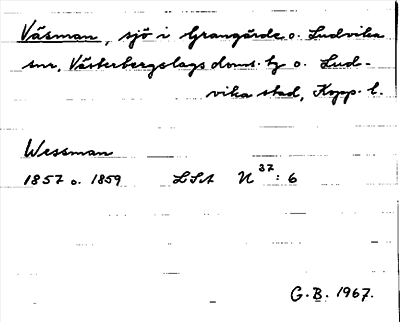 Väsman, sjö i Grangärde o. Ludvika
snr, Västerbergslags doms. tg o. Lud-
vika stad, Kopp. l.
Wessman
1857 o. 1859 LSA N 37: 6
G.B. 1967.